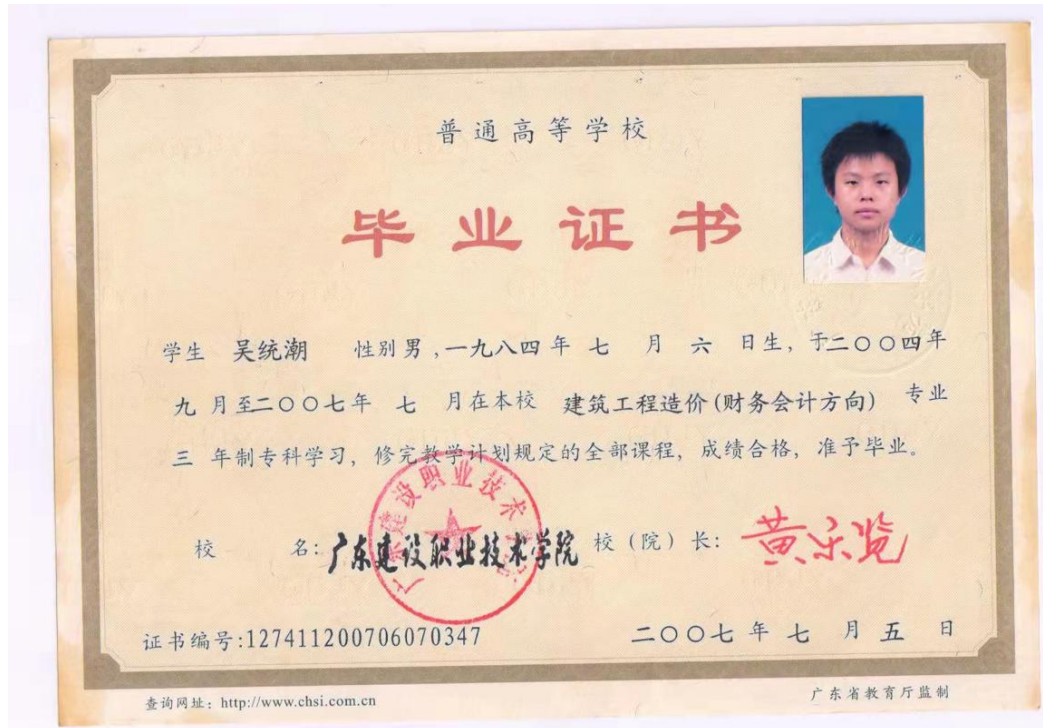 普通高等学校
毕业证书
学生 吴统潮 性别男,一九八四年 七 月 六 日生,于二〇〇四年
九 月至二〇〇七年 七 月在本校 建筑工程造价(财务会计方向) 专业
三 年制专科学习,修完教学计划规定的全部课程,成绩合格,准予毕业。
广东建设职业技术学院
校 名:广东建设职业技术学院 校(院)长:
证书编号:127411200706070347 二〇〇七 年 七 月 五 日
查询网址:http://www.chsi.com.cn 广东省教育厅监制